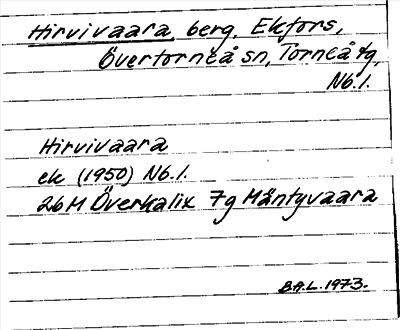 Hirvivaara, berg, Ekfors,
Övertorneå sn, Torneå tg,
Nb. l.
Hirvivaara
ek (1950) Nb. l.
26 M Överkalix 7g Mäntyvaara
B.A.L. 1973.